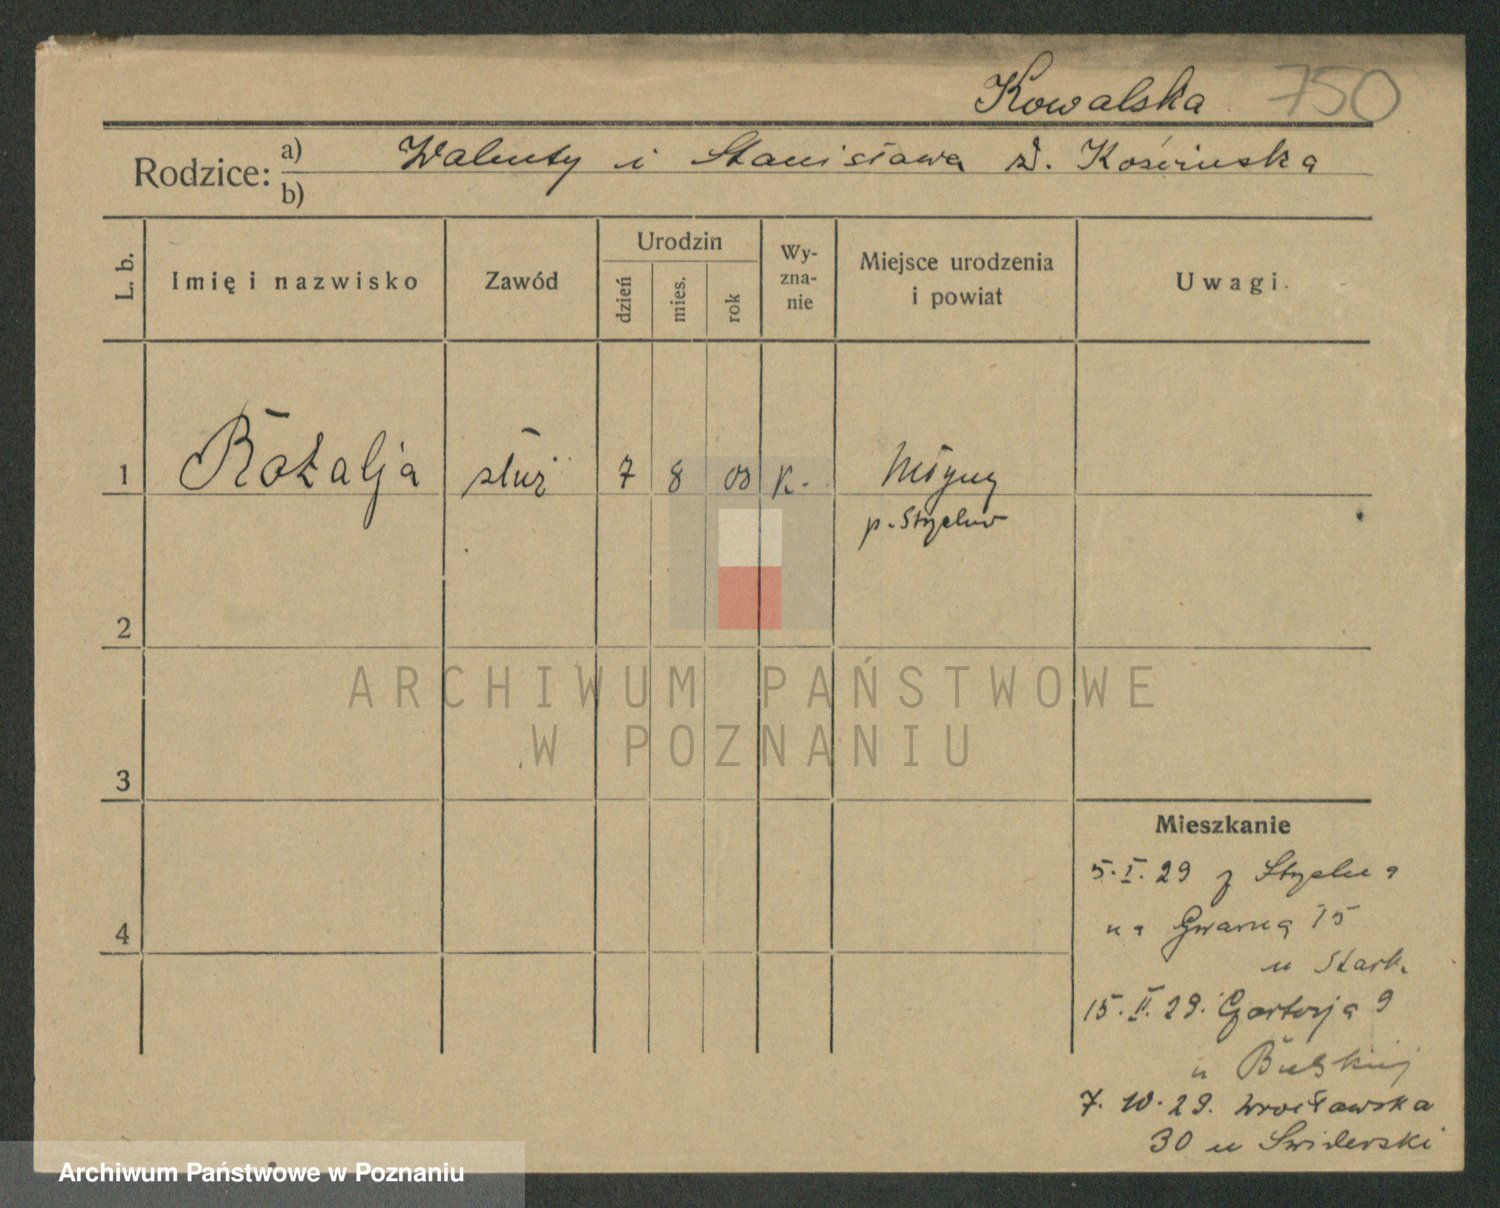 Kowalska 750
Rodzice: a) Walenty i Stanisława z d.
b)
L. b.
Imię i nazwisko
Zawód
Urodzin
dzień
mies.
rok
Wy-
zna-
nie
Miejsce urodzenia
i powiat
Uwagi.
1 Rozalja służ 7 8 03 K. Młyny
p. Strzelno
2
ARCHIWUM PAŃSTWOWE
W POZNANIU
3
Mieszkanie
5.I.29 z Strzelna
na Gwarną 15
4
u Stark.
15.II.29. Czartorja 9
u
7.10.29. Wrocławska
30 u Swiderski
Archiwum Państwowe w Poznaniu